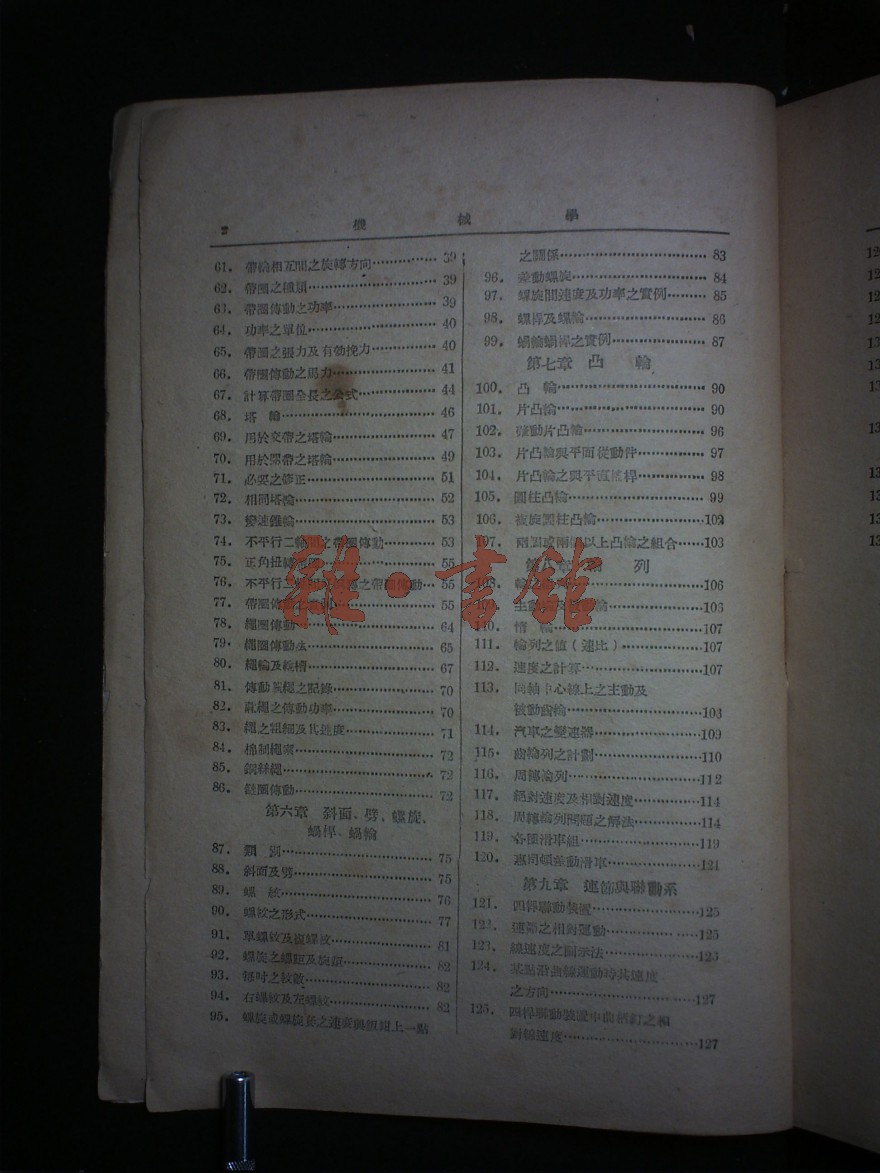 2 機械學
61. 帶輪相互間之旋轉方向 39
62. 帶圈之種類 39
63. 帶圈傳動之功率 39
64. 功率之單位 40
65. 帶圈之張力及有効挽力 40
66. 帶圈傳動之馬力 41
67. 計算帶圈全長之公式 44
68. 塔輪 46
69. 用於交帶之塔輪 47
70. 用於開帶之塔輪 49
71. 必要之修正 51
72. 相同塔輪 52
73. 變速錐輪 53
74. 不平行二輪間之帶圈傳動 53
75. 正角扭轉 55
76. 不平行二 之帶圈傳動 55
77. 帶圈傳動 55
78. 繩圈傳動 64
79. 繩圈傳動法 65
80. 繩輪及輪槽 67
81. 傳動 繩之記錄 70
82. 蔴繩之傳動功率 70
83. 繩之粗細及其速度 71
84. 棉制繩索 72
85. 鋼絲繩 72
86. 鏈圈傳動 72
第六章 斜面、劈、螺旋、
蝸桿、蝸輪
87. 類別 75
88. 斜面及劈 75
89. 螺紋 76
90. 螺紋之形式 77
91. 單螺紋及複螺紋 81
92. 螺旋之螺距及旋距 82
93. 每吋之紋數 82
94. 右螺紋及左螺紋 82
95. 螺旋或螺旋 之速度與 上一點
之關係 83
96. 差動螺旋 84
97. 螺旋間速度及功率之實例 85
98. 螺桿及螺輪 86
99. 蝸輪蝸桿之實例 87
第七章 凸輪
100. 凸輪 90
101. 片凸輪 90
102. 確動片凸輪 96
103. 片凸輪與平面從動件 97
104. 片凸輪之與平面搖桿 98
105. 圓柱凸輪 99
106. 複旋圓柱凸輪 102
107. 兩個或兩個以上凸輪之組合 103
第八章 輪列
108. 輪 106
109. 主動 及 輪 106
110. 惰輪 107
111. 輪列之值(速比) 107
112. 速度之計算 107
113. 同軸中心線上之主動及
被動齒輪 108
114. 汽車之變速器 109
115. 齒輪列之計劃 110
116. 周轉輪列 112
117. 絕對速度及相對速度 114
118. 周轉輪列問題之解法 114
119. 各種滑車組 119
120. 惠司頓差動滑車 121
第九章 連節與聯動系
121. 四桿聯動裝置 125
122. 連節之相對運動 125
123. 線速度之圖示法 123
124. 某點沿曲線運動時其速度
之方向 127
125. 四桿聯動裝置中曲柄釘之相
對線速度 127
雜·書館